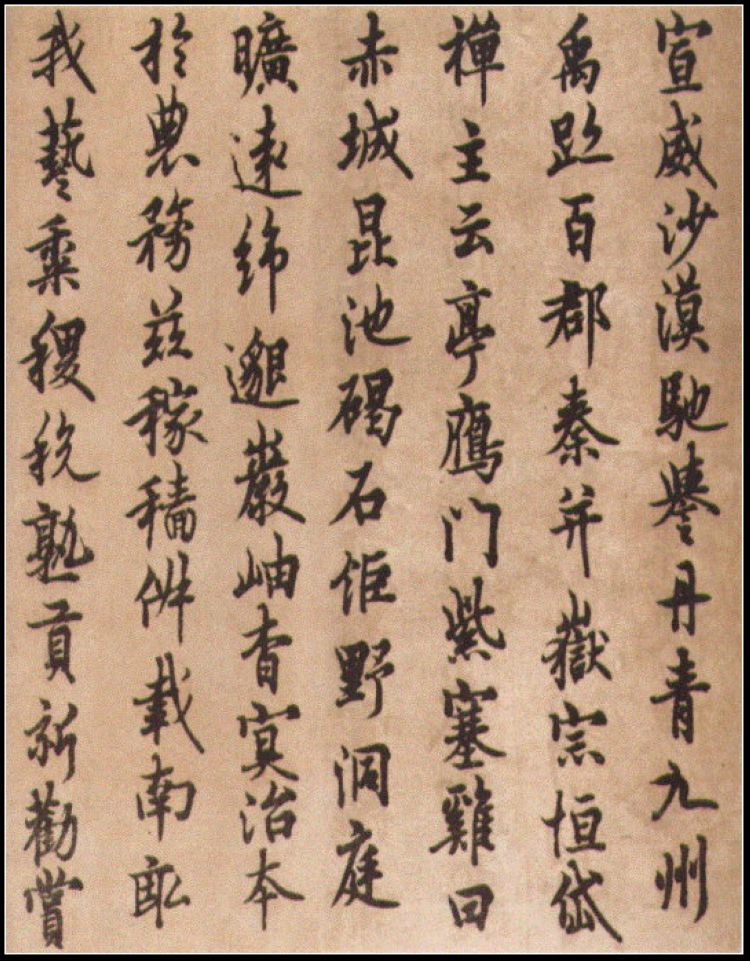 宣威沙漠馳譽丹青九州
禹跡百郡秦并嶽宗恒岱
禪主云亭鴈門紫塞雞田
赤城昆池碣石鉅野洞庭
曠遠綿邈巖岫杳冥治本
於農務茲稼穡俶載南畝
我藝黍稷稅熟貢新勸賞